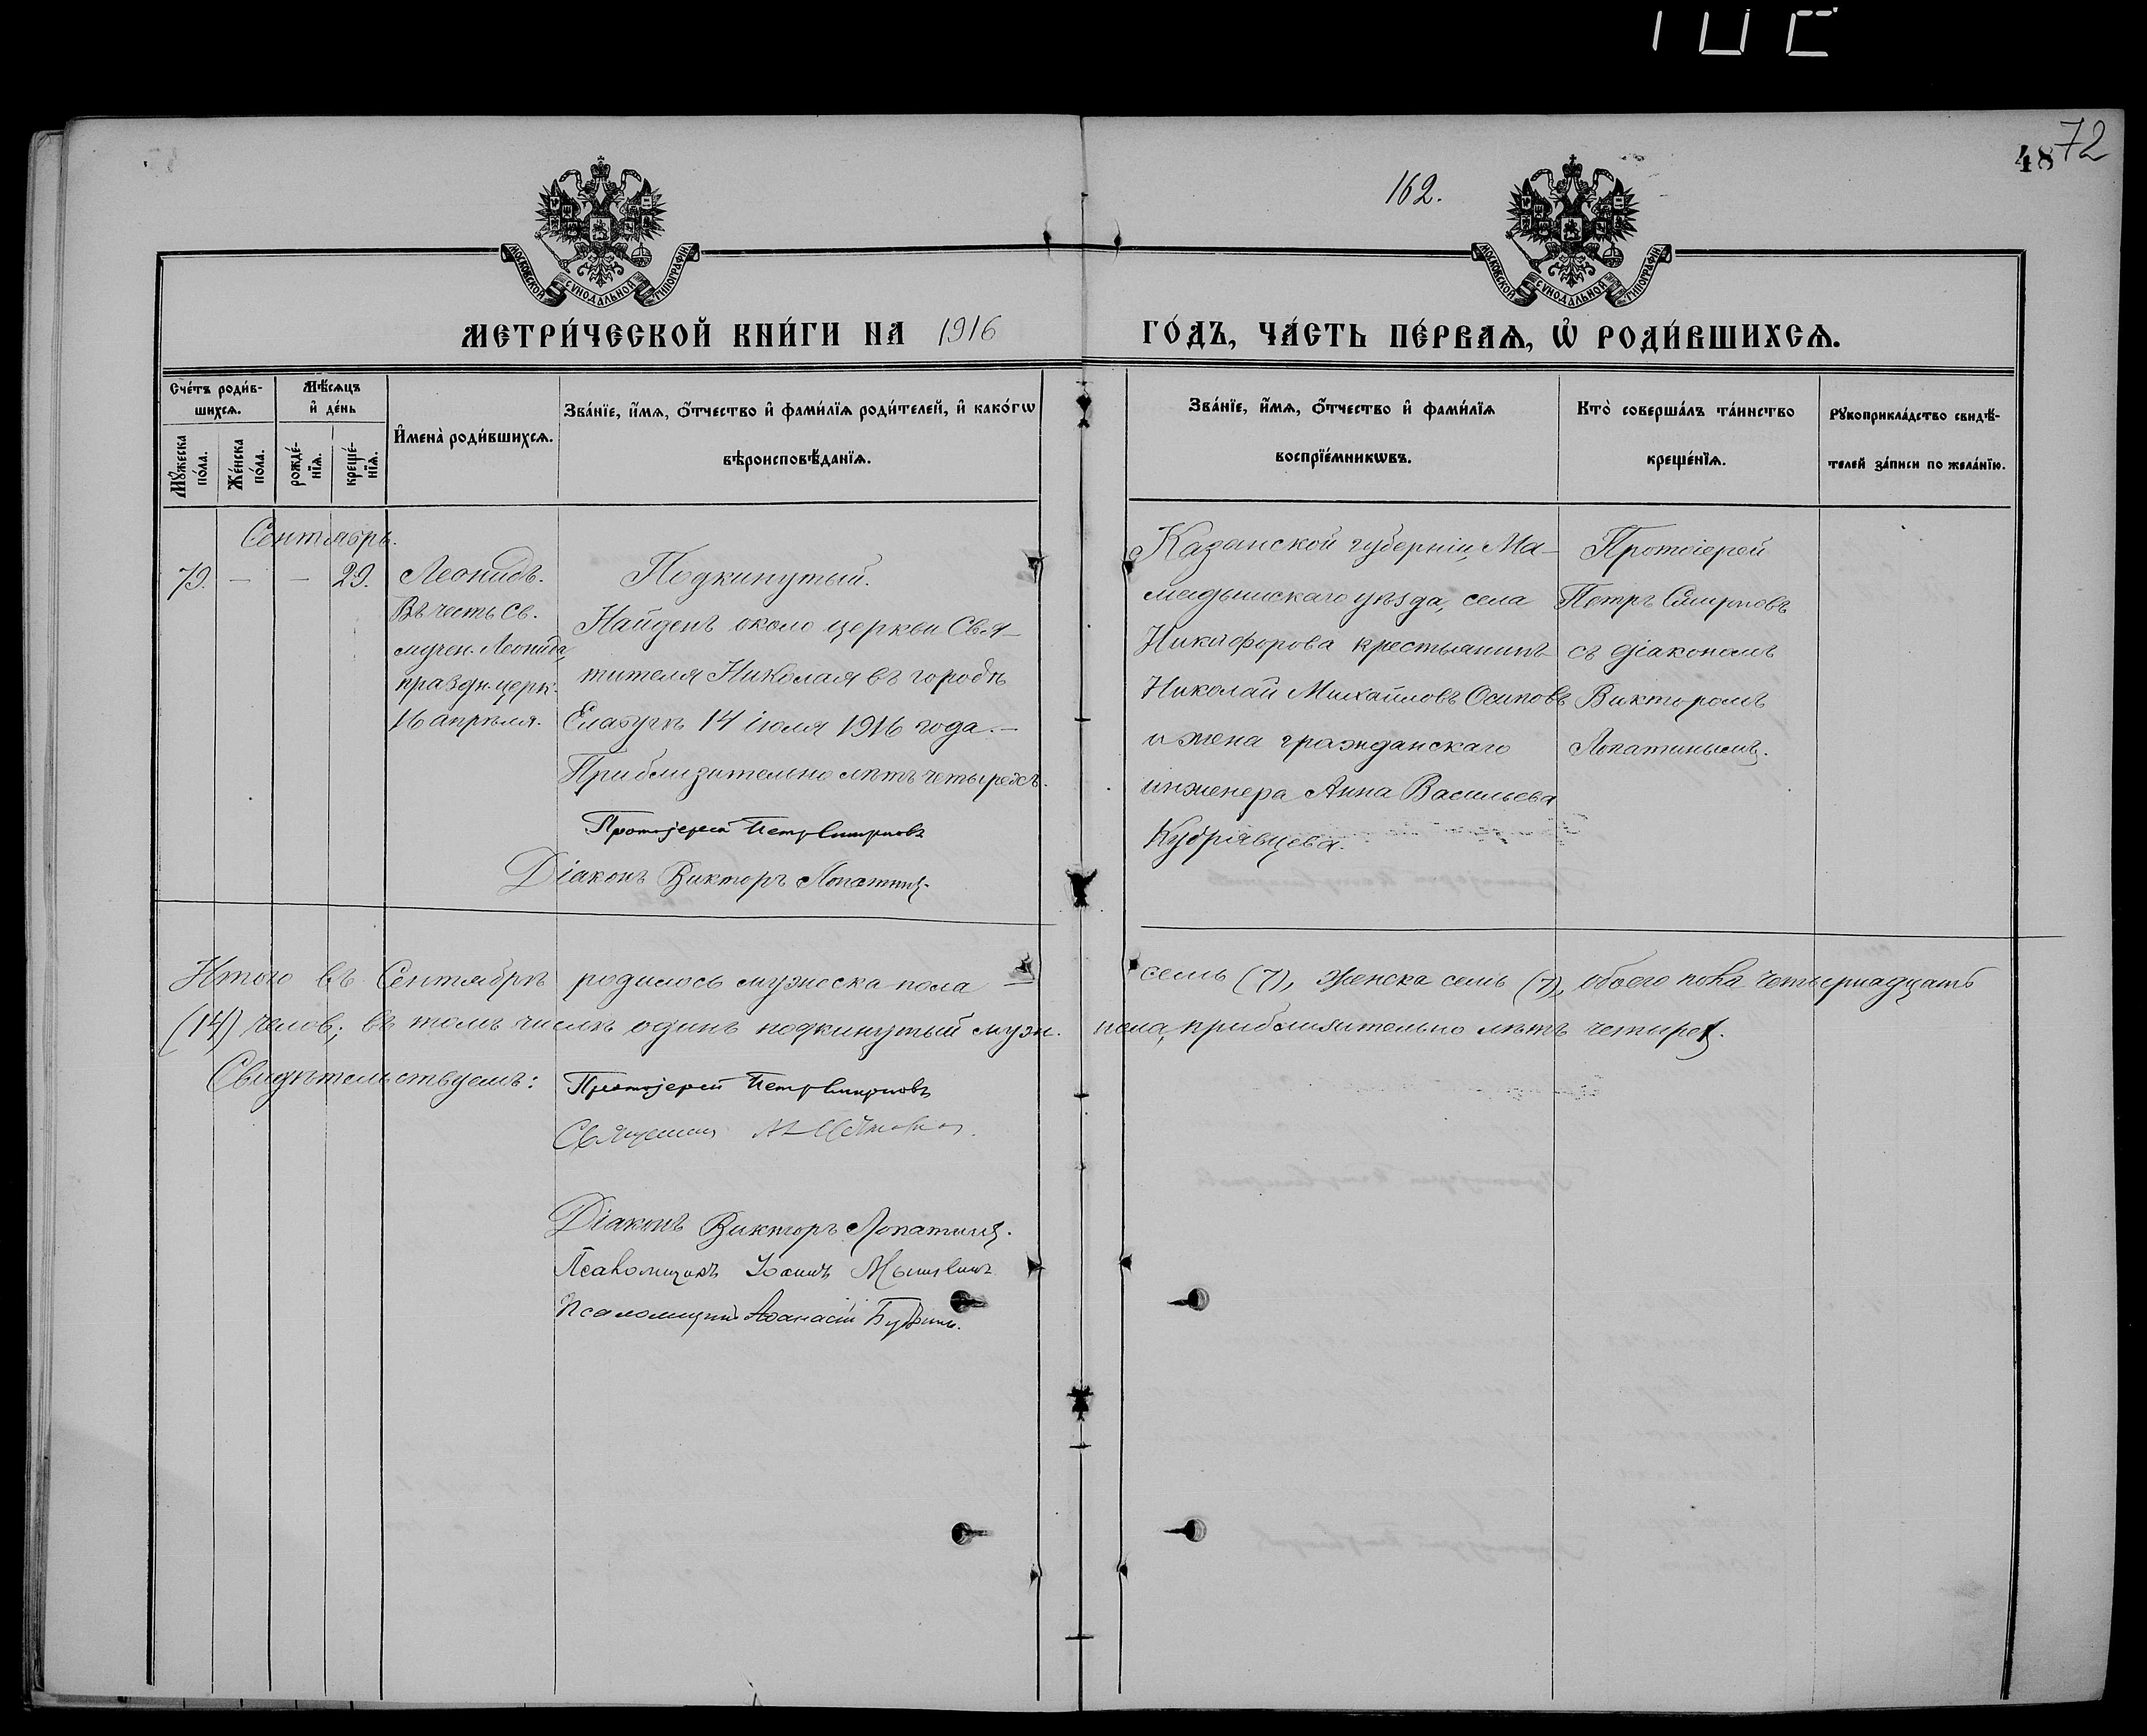 72
48
162.
МОСКОВСКОЙ СѴНОДАЛЬНОЙ ТИПОГРАФІИ
МОСКОВСКОЙ СѴНОДАЛЬНОЙ ТИПОГРАФІИ
МЕТРИ́ЧЕСКОЙ КНИ́ГИ НА 1916
ГО́ДЪ, ЧА́СТЬ ПЕ́РВАѦ, Ѡ҆ РОДИ́ВШИХСѦ.
Сче́тъ роди́в-
шихсѧ.
Мꙋ́жеска по́ла.
Же́нска по́ла.
Мѣ́сѧцъ
и҆ де́нь
рожде́-
нїѧ.
креще́-
нїѧ.
И҆мена̀ роди́вшихсѧ.
Зва́нїе, и҆́мѧ, ѻ҆́тчество и҆ фами́лїѧ роди́телей, и҆ како́гѡ
вѣроисповѣ́данїѧ.
Зва́нїе, и҆́мѧ, ѻ҆́тчество и҆ фами́лїѧ
воспрїе́мникѡвъ.
Кто̀ соверша́лъ та́инство
креще́нїѧ.
Рꙋкоприкла́дство свидѣ́-
телей за́писи по жела́нїю.
Сентябрь.
79. — — 29.
Леонидъ.
Въ честь св.
мучен. Леонида,
праздн. церк.
16 апрѣля.
Подкинутый.
Найденъ около церкви Свя-
тителя Николая въ городѣ
Елабугѣ 14 іюля 1916 года.—
Приблизительно лѣтъ четырехъ.
Протоіерей Петръ Смирновъ
Діаконъ Викторъ Лопатинъ.
Казанской губерніи, Ма-
мадышскаго уѣзда, села
Никифорова крестьянинъ
Николай Михайловъ Осиповъ
и жена гражданскаго
инженера Анна Васильева
Кудрявцева.
Протоіерей
Петръ Смирновъ
съ діакономъ
Викторомъ
Лопатинымъ.
Итого въ Сентябрѣ родилось мужеска пола — семь (7), женска семь (7), обоего пола четырнадцать
(14) челов; въ томъ числѣ одинъ подкинутый муж. пола, приблизительно лѣтъ четырех.
Свидѣтельствуемъ:
Протоіерей Петръ Смирновъ
Священникъ
Діаконъ Викторъ Лопатинъ.
Псаломщикъ Іоаннъ
Псаломщикъ Аѳанасій